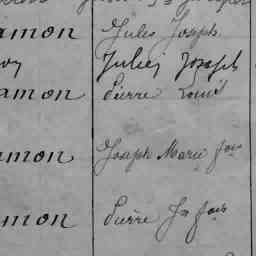 amon Jules Joseph
Jules Joseph
amon Pierre Louis
amon Joseph Marie fois
mon Pierre Jn fois